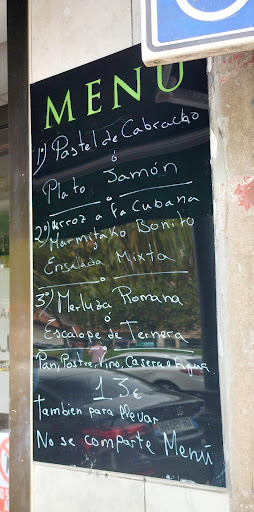 MENÚ
1º) Pastel de Cabracho
ó
Plato Jamón
2º) Arroz a la Cubana
Marmitako Bonito
ó
Ensalada Mixta
3º) Merluza Romana
ó
Escalope de Ternera
Pan, Postre, Vino, Casera o Agua
13€
Tambien para llevar
No se comparte Menú